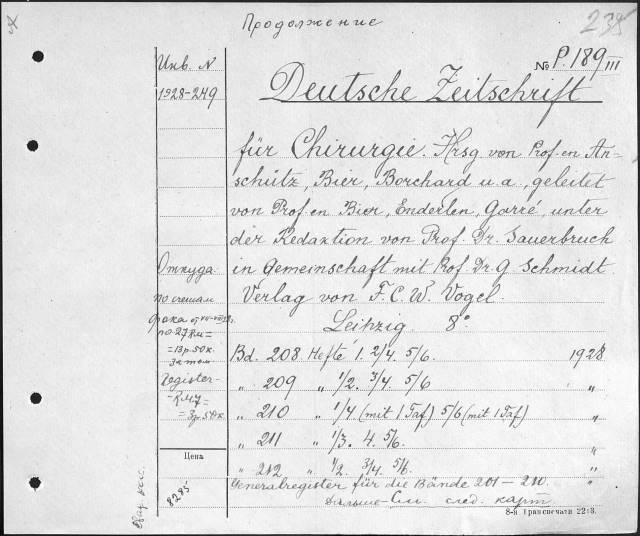 Продолжение
235
Инв. N
1928-249
№ P.189 III
Deutsche Zeitschrift
für Chirurgie. Hrsg von Prof. en An-
schütz, Bier, Borchard u. a., geleitet
von Prof. en Bier, Enderlen, Garrè, unter
der Redaktion von Prof. Dr. Sauerbruch
in Gemeinschaft mit Prof. Dr. G Schmidt.
Verlag von F. C. W. Vogel.
Leipzig 8°
Откуда
по счетам
по 27 R.M =
= 13 р. 50 к.
за том
Register-
R.M. 7 =
= 3 р. 50 к.
Bd. 208 Hefte 1. 2/4. 5/6. 1928
„ 209 „ 1/2. 3/4. 5/6 „
„ 210 „ 1/4 (mit 1 Taf) 5/6 (mit 1 Taf) „
„ 211 „ 1/3. 4. 5/6. „
„ 212 „ 1/2. 3/4. 5/6. „
Generalregister für die Bände 201-210. „
Дальше См. след. карт
Цена
8285
8-я Транспечати 2243.